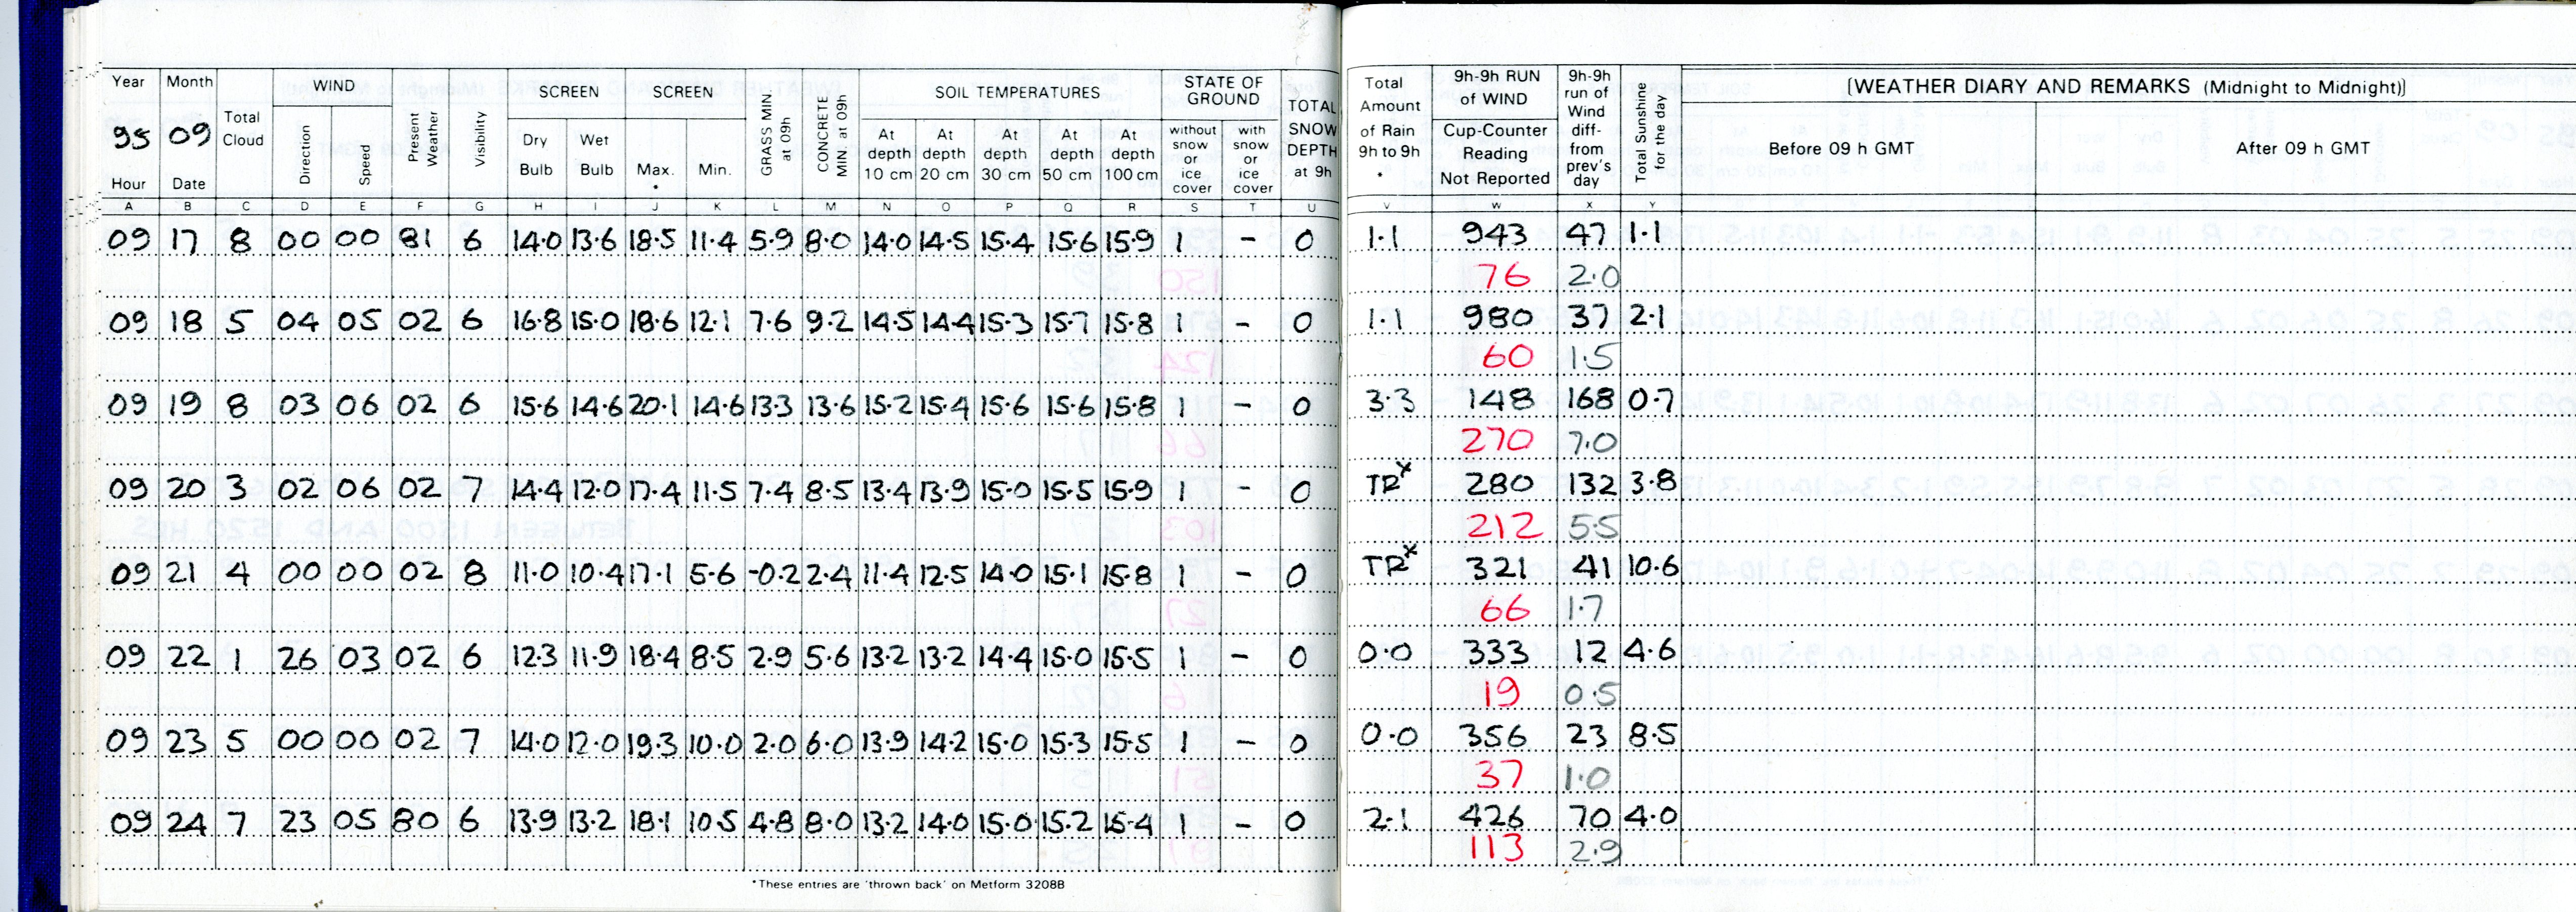 Year Month Total Cloud WIND Present Weather Visibility SCREEN SCREEN GRASS MIN at 09h CONCRETE MIN at 09h SOIL TEMPERATURES STATE OF GROUND TOTAL SNOW DEPTH at 9h Total Amount of Rain 9h to 9h * 9h-9h RUN of WIND 9h-9h run of Wind diff-from prev's day Total Sunshine for the day [WEATHER DIARY AND REMARKS (Midnight to Midnight)]
95 09 Direction Speed Dry Bulb Wet Bulb Max. * Min. At depth 10 cm At depth 20 cm At depth 30 cm At depth 50 cm At depth 100 cm without snow or ice cover with snow or ice cover Cup-Counter Reading Not Reported Before 09 h GMT After 09 h GMT
Hour Date
A B C D E F G H I J K L M N O P Q R S T U V W X Y
09 17 8 00 00 81 6 14.0 13.6 18.5 11.4 5.9 8.0 14.0 14.5 15.4 15.6 15.9 1 - 0 1.1 943 47 1.1
76 2.0
09 18 5 04 05 02 6 16.8 15.0 18.6 12.1 7.6 9.2 14.5 14.4 15.3 15.7 15.8 1 - 0 1.1 980 37 2.1
60 1.5
09 19 8 03 06 02 6 15.6 14.6 20.1 14.6 13.3 13.6 15.2 15.4 15.6 15.6 15.8 1 - 0 3.3 148 168 0.7
270 7.0
09 20 3 02 06 02 7 14.4 12.0 17.4 11.5 7.4 8.5 13.4 13.9 15.0 15.5 15.9 1 - 0 TRx 280 132 3.8
212 5.5
09 21 4 00 00 02 8 11.0 10.4 17.1 5.6 -0.2 2.4 11.4 12.5 14.0 15.1 15.8 1 - 0 TRx 321 41 10.6
66 1.7
09 22 1 26 03 02 6 12.3 11.9 18.4 8.5 2.9 5.6 13.2 13.2 14.4 15.0 15.5 1 - 0 0.0 333 12 4.6
19 0.5
09 23 5 00 00 02 7 14.0 12.0 19.3 10.0 2.0 6.0 13.9 14.2 15.0 15.3 15.5 1 - 0 0.0 356 23 8.5
37 1.0
09 24 7 23 05 80 6 13.9 13.2 18.1 10.5 4.8 8.0 13.2 14.0 15.0 15.2 15.4 1 - 0 2.1 426 70 4.0
113 2.9
*These entries are 'thrown back' on Metform 3208B